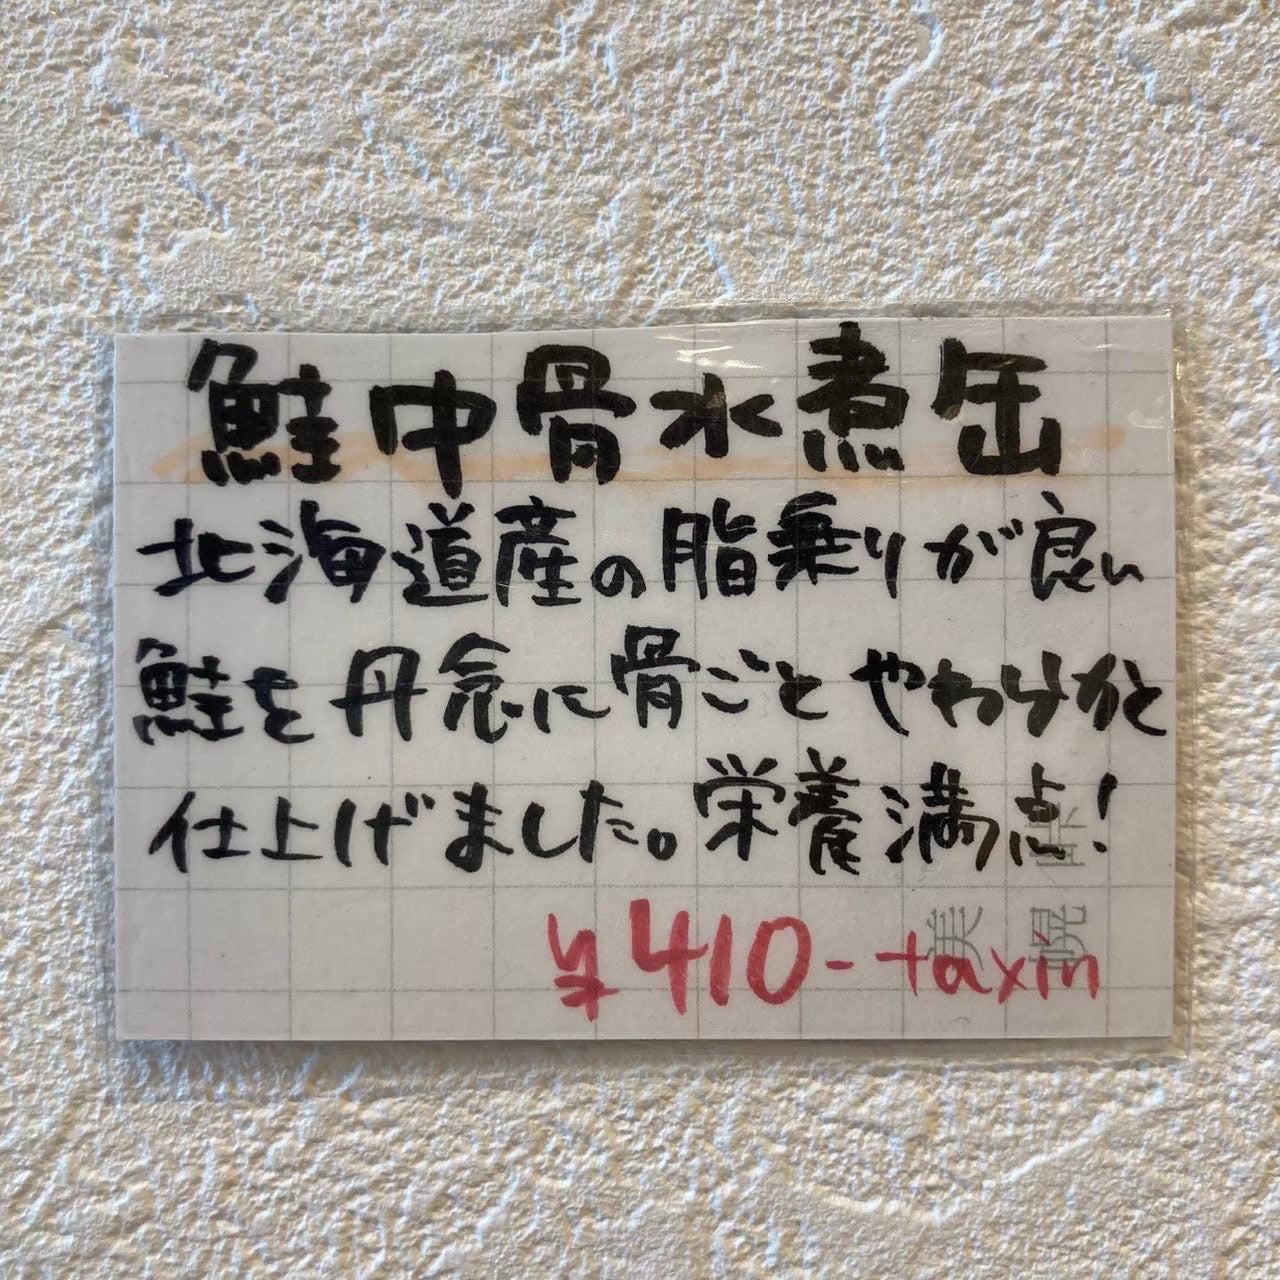 鮭中骨水煮缶
北海道産の脂乗りが良い
鮭を丹念に骨ごとやわらかと
仕上げました。栄養満点!
¥410-taxin